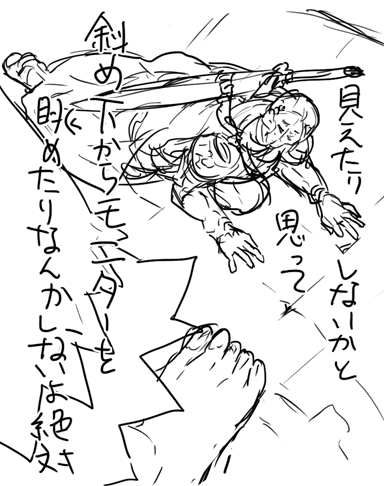 見えたり
しないかと
思って
斜め下からモニターを
眺めたりなんかしないよ絶対